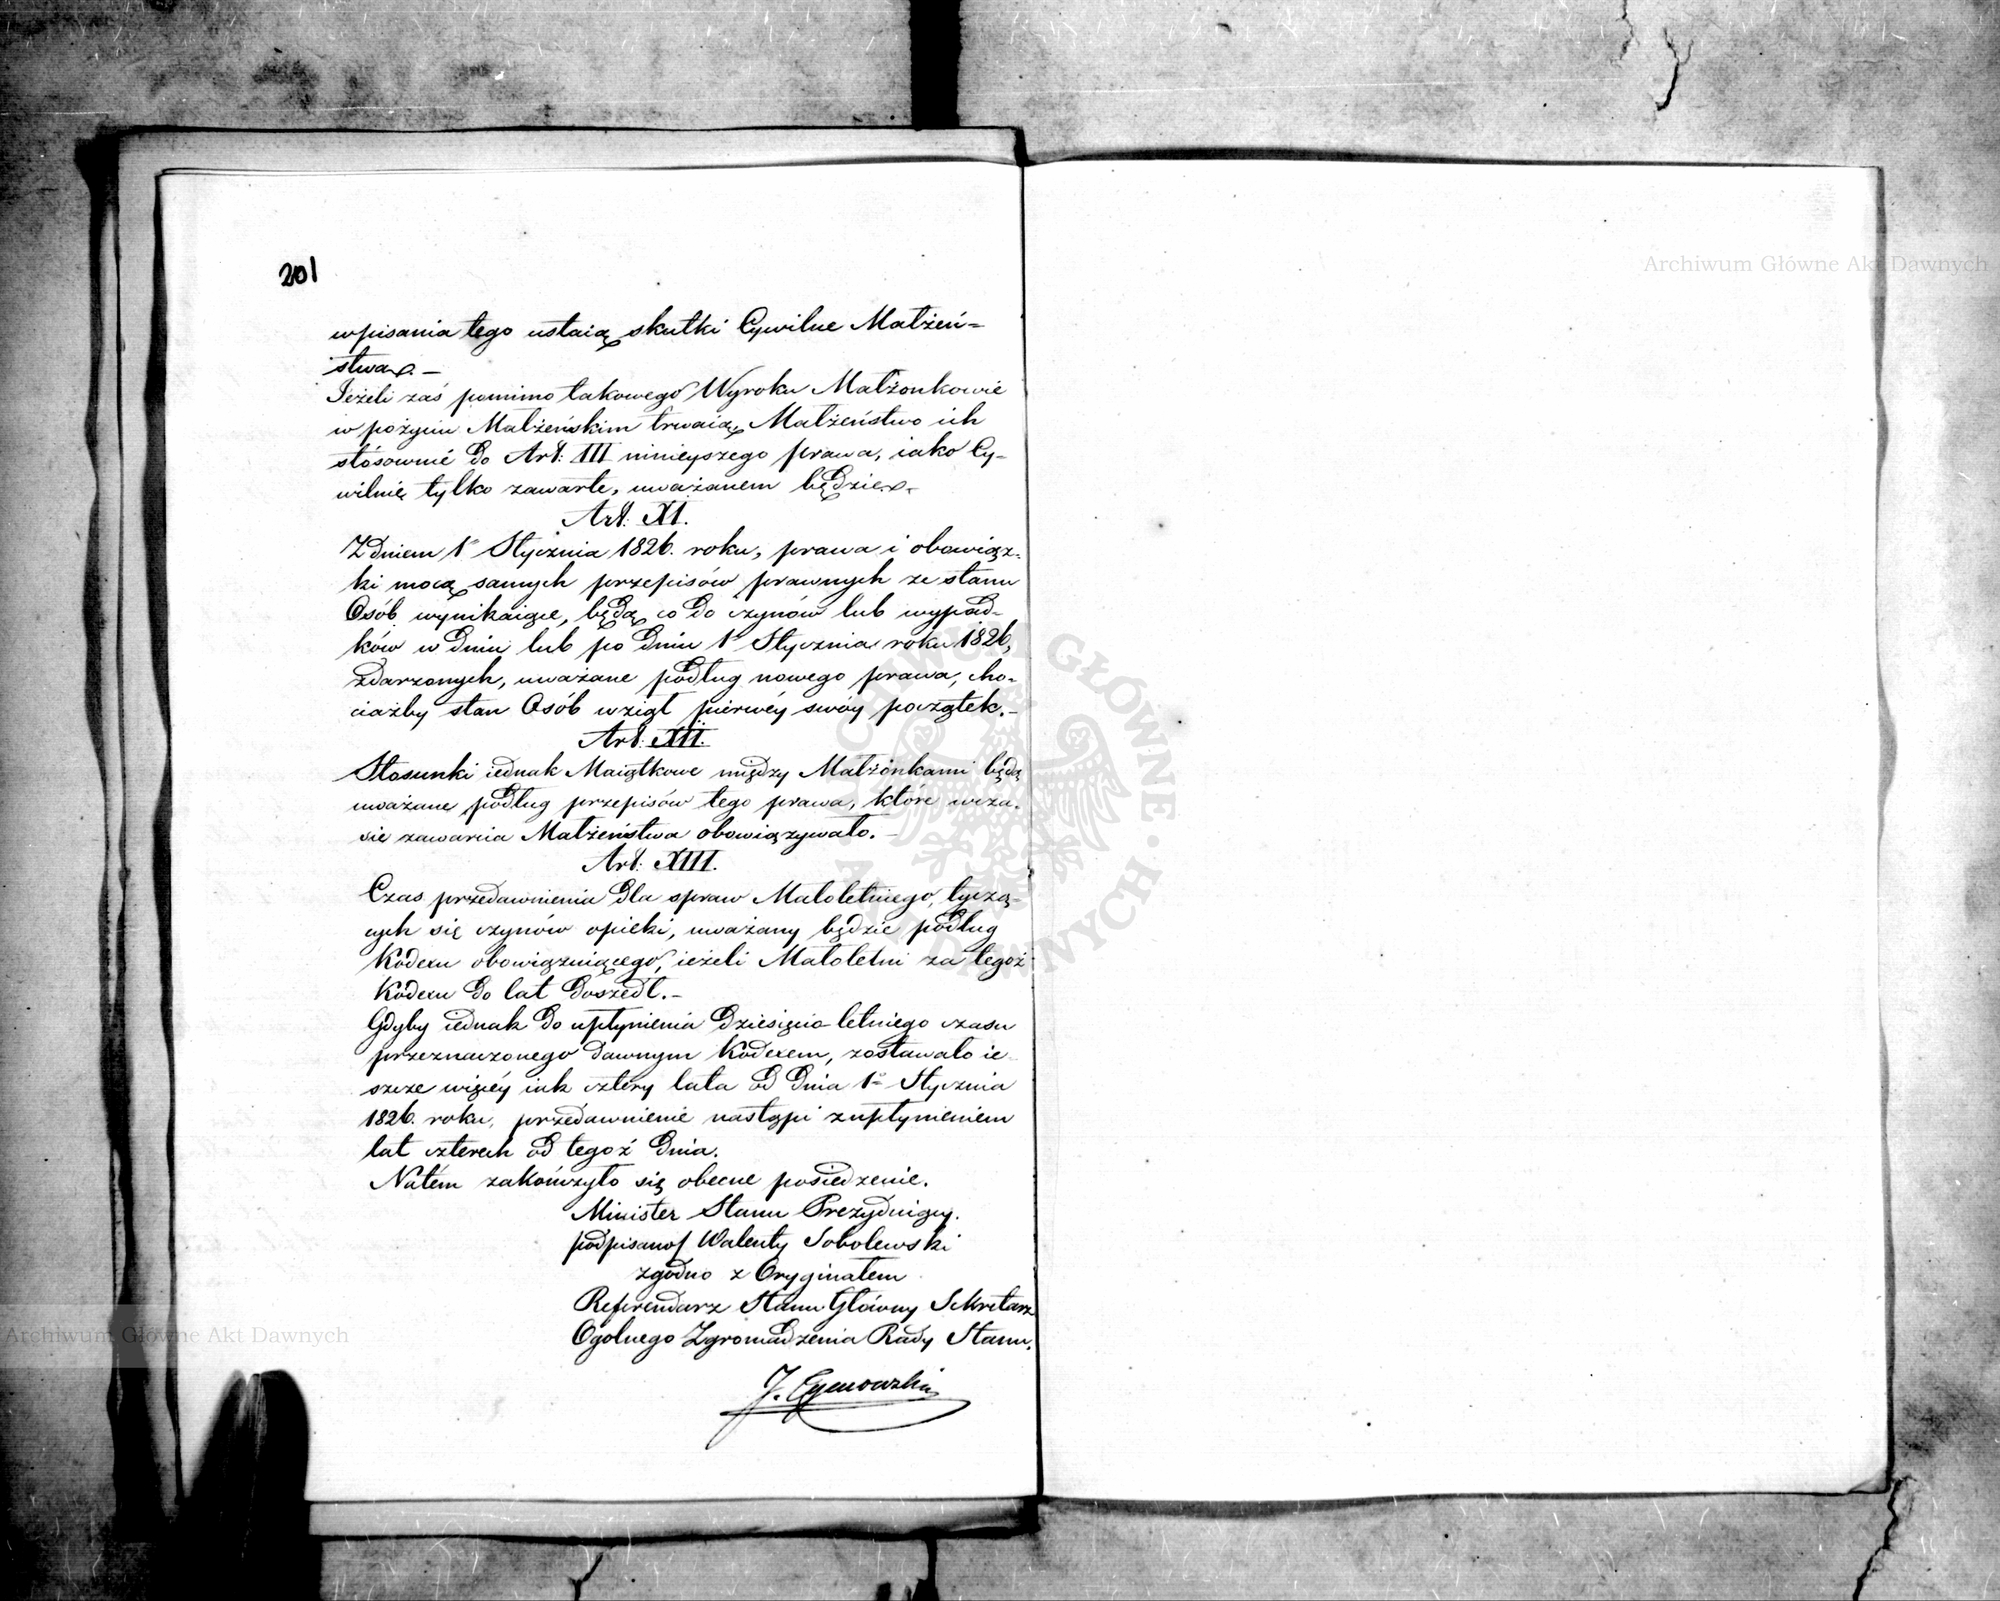 201
wpisania tego ustaią skutki Cywilne Małżeń=
stwa. –
Jeżeli zaś pomimo takowego Wyroku Małżonkowie
w pożyciu Małżeńskim trwaią, Małżeństwo ich
stósownie do Art: III ninieyszego prawa, iako Cy-
wilnie tylko zawarte, uważanem będzie.
Art: XI.
Z dniem 1º Stycznia 1826. roku, prawa i obowiąz-
ki mocą samych przepisów prawnych ze stanu
Osób wynikaiące, będą co do czynów lub wypad-
ków w dniu lub po dniu 1º Stycznia roku 1826,
zdarzonych, uważane podług nowego prawa, cho-
ciażby stan Osób wziął pierwéy swóy początek. –
Art: XII.
Stosunki iednak Maiątkowe między Małżonkami będą
uważane podług przepisów tego prawa, które w cza-
sie zawarcia Małżeństwa obowiązywało. –
Art: XIII.
Czas przedawnienia dla spraw Małoletniego, tyczą-
cych się czynów opieki, uważany będzie podług
Kodexu obowiązuiącego, ieżeli Małoletni za tegoż
Kodexu do lat doszedł. –
Gdyby iednak do upłynienia dziesięcio letniego czasu
przeznaczonego dawnym Kodexem, zostawało ie-
szcze więcéy iak cztery lata od dnia 1º Stycznia
1826. roku, przedawnienie nastąpi z upłynieniem
lat czterech od tegoż dnia.
Na tém zakończyło się obecne posiedzenie.
Minister Stanu Prezyduiący.
podpisano/ Walenty Sobolewski
zgodno z Oryginałem
Referendarz Stanu Główny Sekretarz
Ogolnego Zgromadzenia Rady Stanu.
J.
Archiwum Główne Akt Dawnych
Archiwum Główne Akt Dawnych
ARCHIWUM GŁÓWNE AKT DAWNYCH